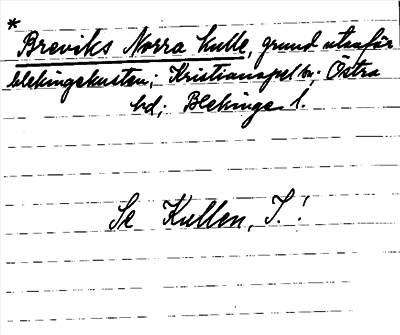 *
Breviks Norra Kulle, grund utanför
blekingekusten; Kristianopel sn; Östra
hd; Blekinge l.
Se Kullen, T.!